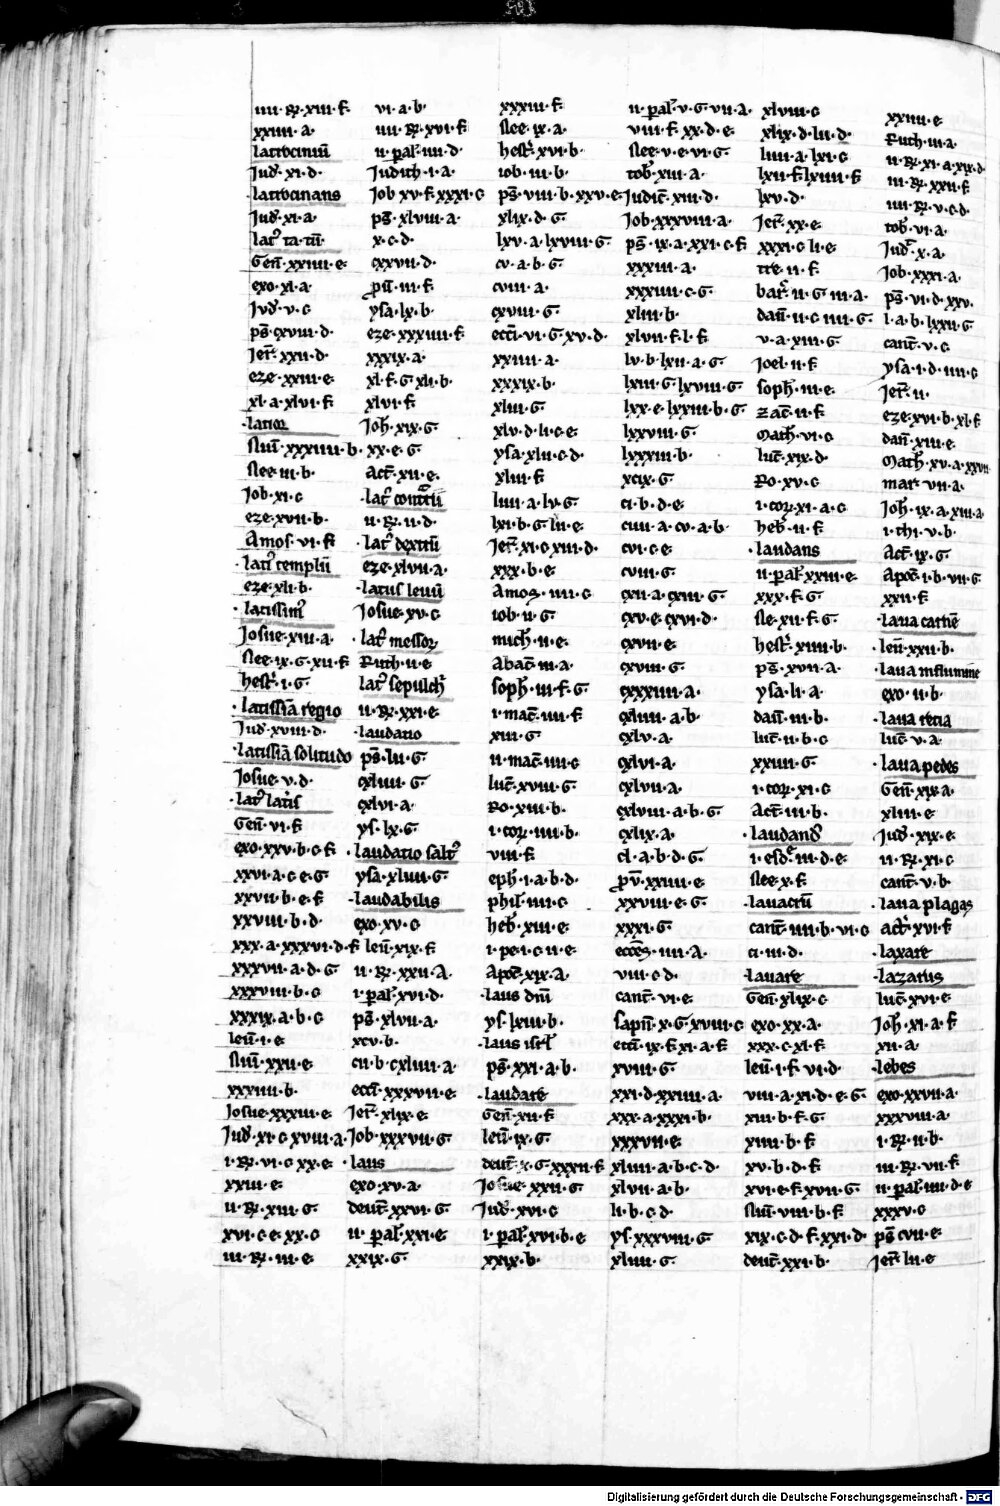 iiii·R·xiii·f·
xxiiii·a·
latrociniū
Jud̄·xi·d·
latrocinans
Jud̄·xi·a·
lat⁹ ta·tū·
Gen̄·xxiiii·e·
exo·xl·a·
Jud̄·v·c·
ps̄·cxviii·d·
Jer̄·xxii·d·
eze·xxiii·e·
xl·a·xlvi·f·
·latior
Nuū·xxxiiii·b·
Nee·iii·b·
Job·xi·c·
eze·xvii·b·
Amos·vi·f·
·lat⁹ templū
eze·xli·b·
·latissim⁹
Josue·xiii·a·
Nee·ix·G·xii·f·
hest̄·i·G·
·latissiā regio
Jud̄·xviii·d·
·latissiā solitudo
Josue·v·d·
·lat⁹ latis
Gen̄·vi·f·
exo·xxv·b·c·f·
xxvi·a·c·e·G·
xxvii·b·e·f·
xxviii·b·d·
xxx·a·xxxvi·d·f·
xxxvii·a·d·G·
xxxviii·b·c·
xxxix·a·b·c·
leui̅·i·e·
Nuū·xxii·e·
xxxiiii·b·
Josue·xxxiii·e·
Jud̄·xi·c·xviii·a·
i·R·vi·c·xx·e·
xxiii·e·
ii·R·xiii·G·
xvi·c·e·xx·c·
iii·R·iii·e·
vi·a·b·
iiii·R·xvi·f·
ii·pal·iiii·d·
Judith·i·a·
Job·xv·f·xxxi·c·
ps̄·xlviii·a·
x·c·d·
cxxvii·d·
p̄u·iii·f·
ysa·lx·b·
eze·xxxiiii·f·
xxxix·a·
xl·f·G·xli·b·
xlvi·f·
Joh̄·xix·G·
xx·e·G·
Act̄·xii·e·
·lat⁹ contritū
ii·R·ii·d·
·lat⁹ dextrū
eze·xlvii·a·
·latus leuū
Josue·xv·c·
·lat⁹ messor
Ruth·ii·e·
lat⁹ sepulch
ii·R·xxi·e·
·laudatio
ps̄·lii·G·
cxliiii·G·
cxlvi·a·
ys·lx·G·
·laudatio salt⁹
ysa·xliiii·G·
·laudabilis
exo·xv·c·
leui̅·xix·f·
ii·R·xxii·A·
i·pal·xvi·d·
ps̄·xlvii·a·
xcv·b·
cii·b·cxliiii·a·
ecci̅·xxxvii·e·
Jer̄·xlix·e·
Job·xxxvii·G·
·laus
exo·xv·a·
deut̄·xxvi·G·
ii·pal·xxi·e·
xxix·G·
xxxiii·f·
Nee·ix·a·
hest̄·xvi·b·
iob·iii·b·
ps̄·viii·b·xxv·e·
xlix·d·G·
lxv·a·lxviii·G·
cv·a·b·G·
cviii·a·
cxviii·G·
ecci̅·vi·G·xv·d·
xxiiii·a·
xxxix·b·
xliii·G·
xlv·d·li·c·e·
ysa·xlii·c·d·
xliii·f·
liiii·a·lv·G·
lxi·b·G·lxii·e·
Jer̄·xi·c·xiii·d·
xxx·b·e·
Amos·iiii·c·
iob·ii·G·
mich̄·ii·e·
Abac̄·iii·a·
soph̄·iii·f·G·
i·mac̄·iiii·f·
xiii·G·
ii·mac̄·iii·c·
luc̄·xviii·G·
Ro·xiii·b·
i·cor·iiii·b·
viii·f·
eph̄·i·a·b·d·
phil·iiii·c·
heb̄·xiii·e·
i·pe·i·c·ii·e·
Apoc̄·xix·a·
·laus dn̄i
ys·lxiii·b·
·laus isrl
ps̄·xxi·a·b·
·laudare
Gen̄·xii·f·
leui̅·ix·G·
deut̄·x·G·xxxii·f·
Josue·xxii·G·
Jud̄·xvi·c·
i·pal·xvi·b·e·
xxix·b·
ii·pal·v·G·vii·a·
viii·f·xx·d·e·
Nee·v·e·vi·G·
tob·xiii·a·
Judic̄·xiii·d·
Job·xxxviii·a·
ps̄·ix·a·xxi·c·f·
xxxiii·a·
xxxiiii·c·G·
xliii·b·
xlvii·f·l·f·
lv·b·lxii·a·G·
lxiii·G·lxviii·G·
lxx·e·lxxiii·b·G·
lxxviii·G·
lxxxiii·b·
xcix·G·
ci·b·d·e·
ciii·a·cv·a·b·
cvi·c·e·
cviii·G·
cxii·a·cxiii·G·
cxv·e·cxvi·d·
cxvii·e·
cxviii·G·
cxxxiiii·a·
cxliiii·a·b·
cxlv·a·
cxlvi·a·
cxlvii·a·
cxlviii·a·b·G·
cxlix·a·
cl·a·b·d·G·
p̄v·xxiiii·e·
xxviii·e·G·
xxxi·G·
ecces̄·iiii·a·
viii·c·d·
cant̄·vi·e·
sapi̅·x·G·xviii·c·
ecci̅·ix·f·xi·a·f·
xviii·G·
xxi·d·xxiiii·a·
xxx·a·xxxi·b·
xxxvii·e·
xliiii·a·b·c·d·
xlvii·a·b·
li·b·c·d·
ys·xxxviii·G·
xliiii·G·
xlviii·c·
xlix·d·lii·d·
liiii·a·lxi·c·
lxii·f·lxiiii·f·
lxv·d·
Jer̄·xx·e·
xxxi·c·li·e·
tre·ii·f·
bar̄·ii·G·iii·a·
dan̄·ii·c·iiii·G·
v·a·xiii·G·
Joel·ii·f·
soph̄·iii·e·
zac̄·ii·f·
Math̄·vi·c·
luc̄·xix·d·
Ro·xv·c·
i·cor·xi·a·c·
heb̄·ii·f·
·laudans
ii·pal·xxiii·e·
xxx·f·G·
Ne·xii·f·G·
hest̄·xiii·b·
ps̄·xvii·a·
ysa·li·a·
dan̄·iii·b·
luc̄·ii·b·c·
xxiiii·G·
i·cor·xi·c·
Act̄·iii·b·
·laudand⁹
i·esd̄·iii·d·e·
Nee·x·f·
·lauacrū
cant̄·iiii·b·vi·c·
ci·iii·d·
·lauare
Gen̄·xlix·c·
exo·xx·a·
xxx·c·xl·f·
leui̅·i·f·vi·d·
viii·a·xi·d·e·G·
xiii·b·f·G·
xiiii·b·f·
xv·b·d·f·
xvi·e·f·xvii·G·
Nuū·viii·b·f·
xix·c·d·f·xxi·d·
deut̄·xxi·b·
xxiiii·e·
Ruth·iii·a·
ii·R·xi·a·xix·d·
iii·R·xxii·f·
iiii·R·v·c·d·
tob·vi·a·
Jud̄·x·a·
Job·xxxi·a·
ps̄·vi·d·xxv·
l·a·b·lxxii·G·
cant̄·v·c·
ysa·i·d·iiii·c·
Jer̄·ii·
eze·xvi·b·xl·f·
dan̄·xiii·e·
Math̄·xv·a·xxvii·
mar·vii·a·
Joh̄·ix·a·xiii·a·
i·thi·v·b·
Act̄·ix·G·
Apoc̄·i·b·vii·G·
xxii·f·
·laua carnē
leui̅·xxii·b·
·laua in flumine
exo·ii·b·
·laua retia
luc̄·v·a·
·laua pedes
Gen̄·xix·a·
xliii·e·
Jud̄·xix·e·
ii·R·xi·c·
cant̄·v·b·
·laua plagas
act̄·xvi·f·
·laxare
·lazarus
luc̄·xvi·e·
Joh̄·xi·a·f·
xii·a·
·lebes
exo·xxvii·a·
xxxviii·a·
i·R·ii·b·
iii·R·vii·f·
ii·pal·iiii·d·e·
xxxv·c·
ps̄·cvii·e·
Jer̄·lii·e·
Digitalisierung gefördert durch die Deutsche Forschungsgemeinschaft - DFG